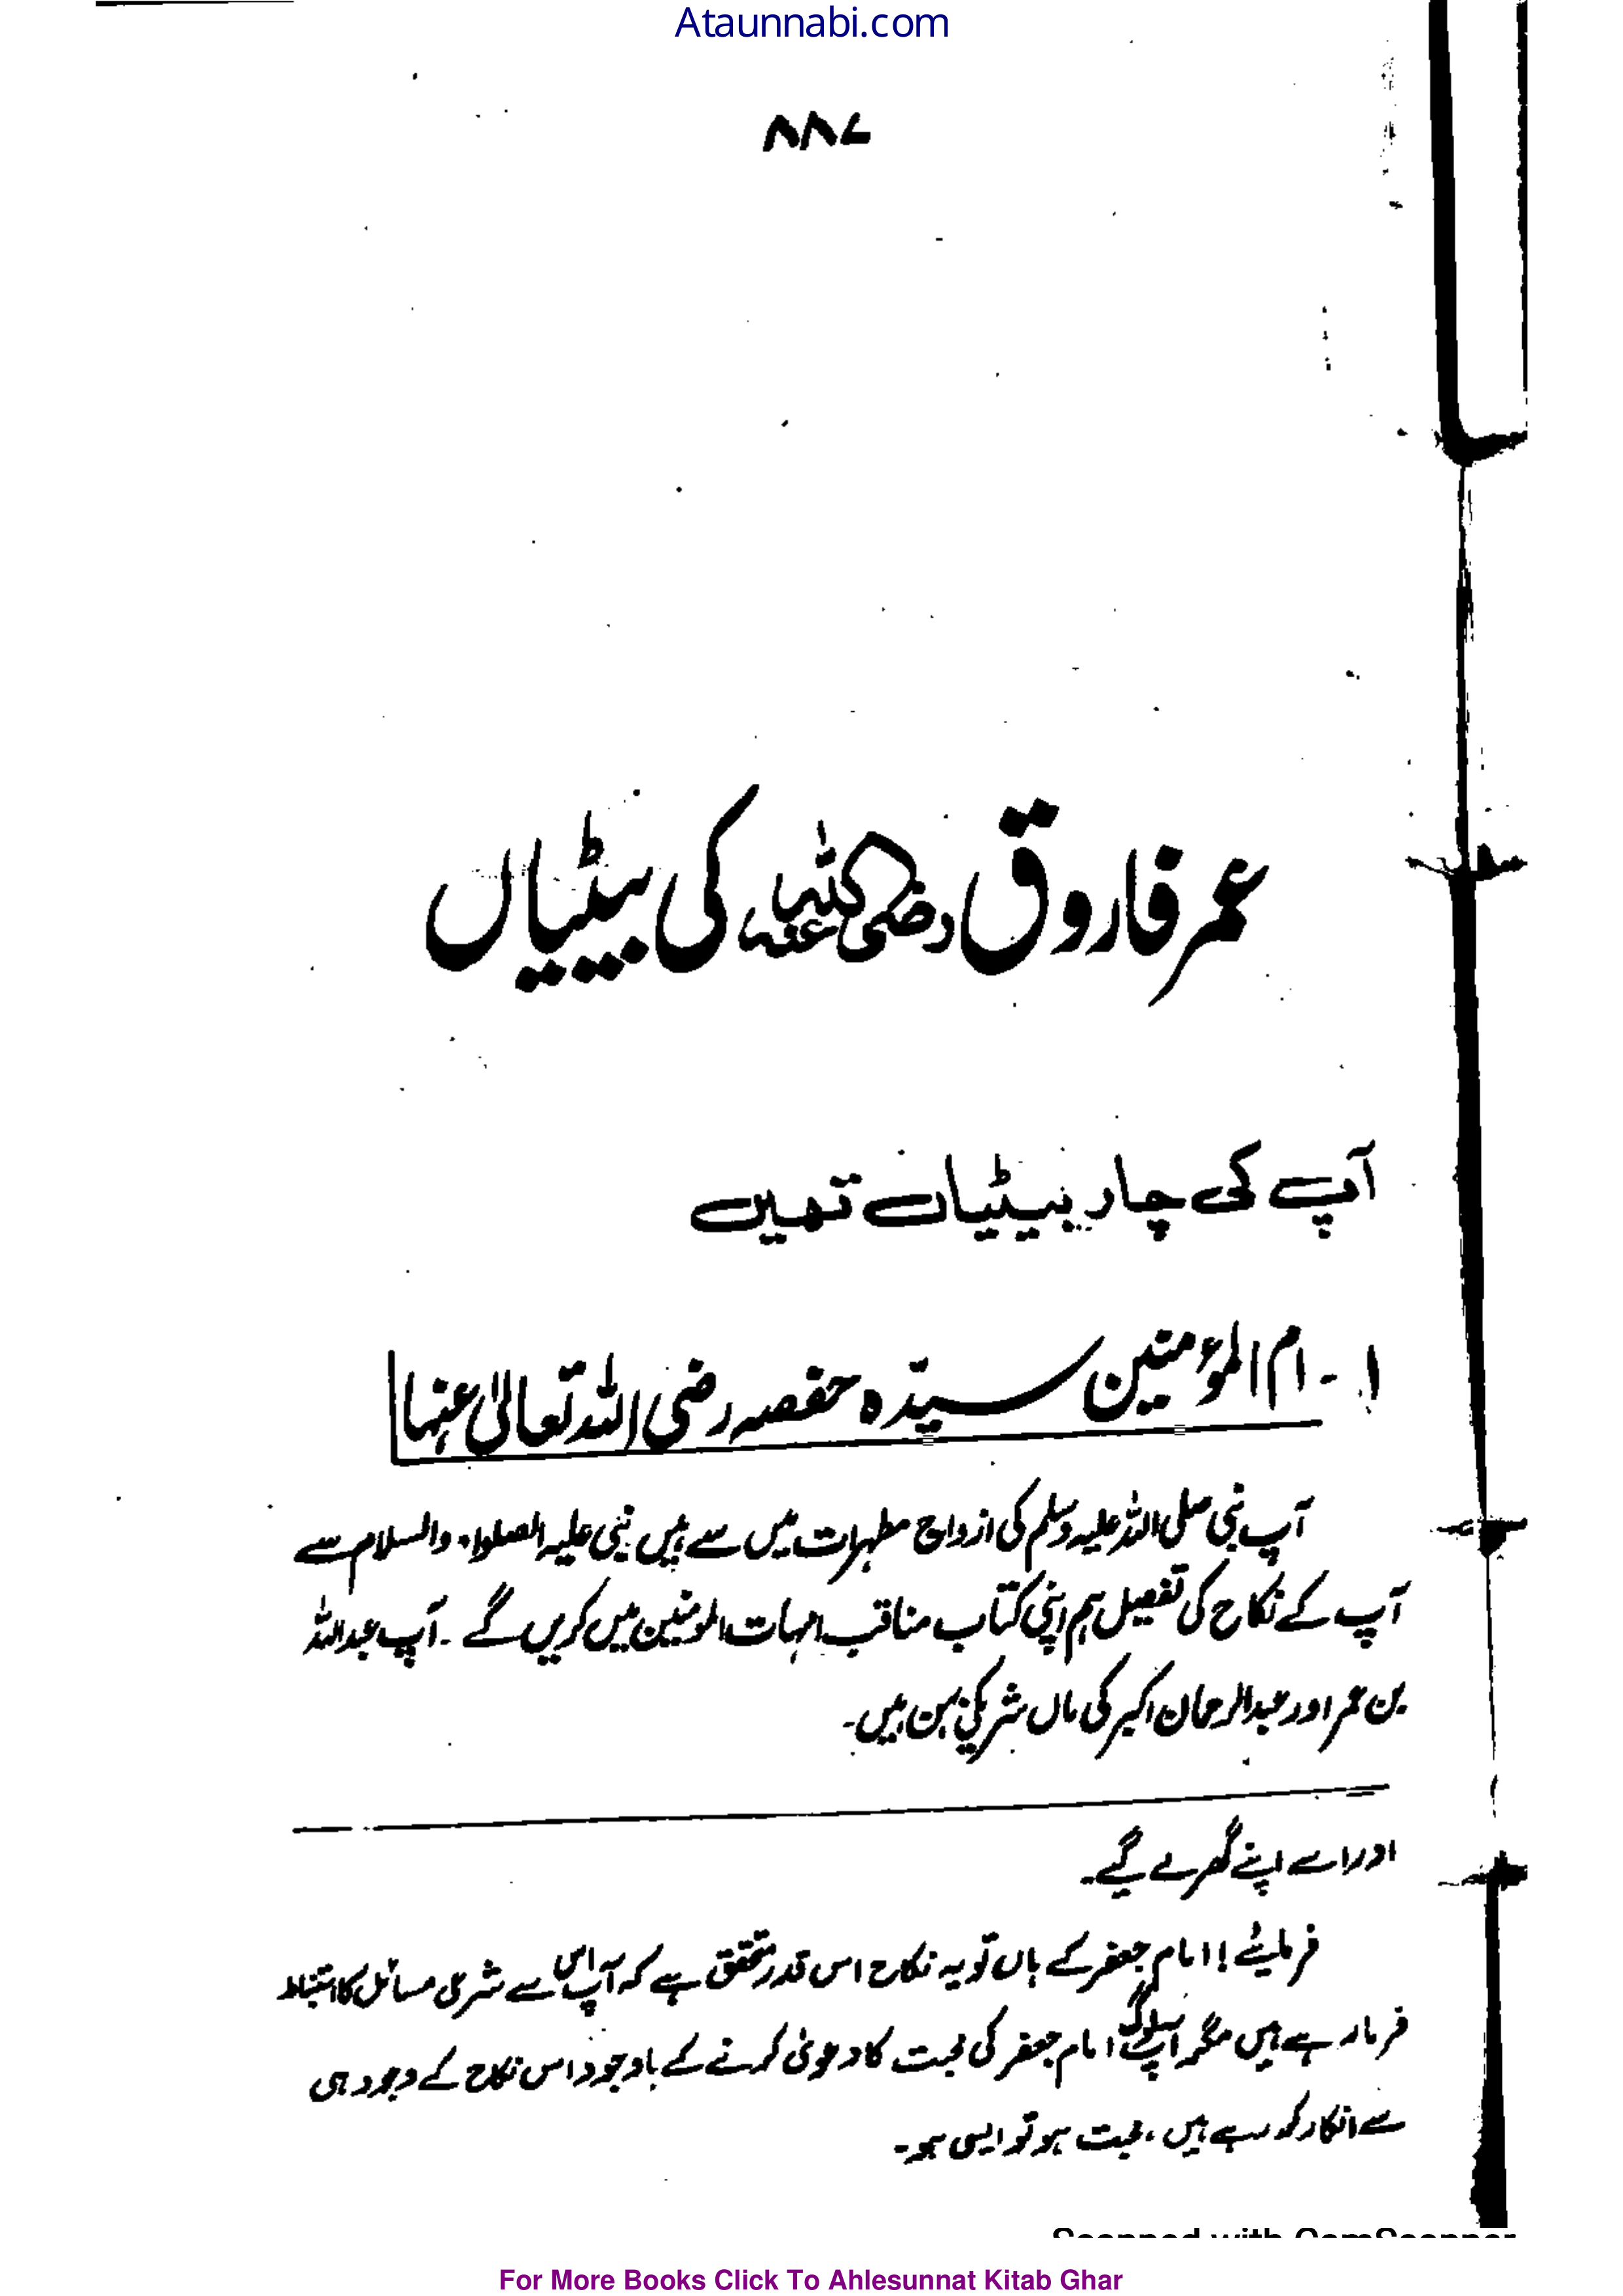 Ataunnabi.com
۸۸۷
عمر فاروق رضی اللہ عنہ کی بیٹیاں
آپ کی چار بیٹیاں تھیں
۱ - ام المؤمنین سیدہ حفصہ رضی اللہ تعالیٰ عنہا
آپ نبی صلی اللہ علیہ وسلم کی ازواج مطہرات میں سے ہیں نبی علیہ الصلوۃ والسلام سے
آپ کے نکاح کی تفصیل ہم اپنی کتاب مناقب امہات المومنین میں کریں گے ۔ آپ عبداللہ
بن عمر اور عبدالرحمان اکبر کی ماں شریکی بہن ہیں۔
اور اسے اپنے گھر لے گیے۔
فرمایئے ! امام جعفر کے ہاں تو یہ نکاح اس قدر متحقق ہے کہ آپ اس سے شرعی مسائل کا استنباط
فرما رہے ہیں مگر آپ لوگ امام جعفر کی محبت کا دعویٰ کرنے کے باوجود اس نکاح کے وجود ہی
سے انکار کر رہے ہیں ، محبت ہو تو ایسی ہو۔
Scanned with CamScanner
For More Books Click To Ahlesunnat Kitab Ghar